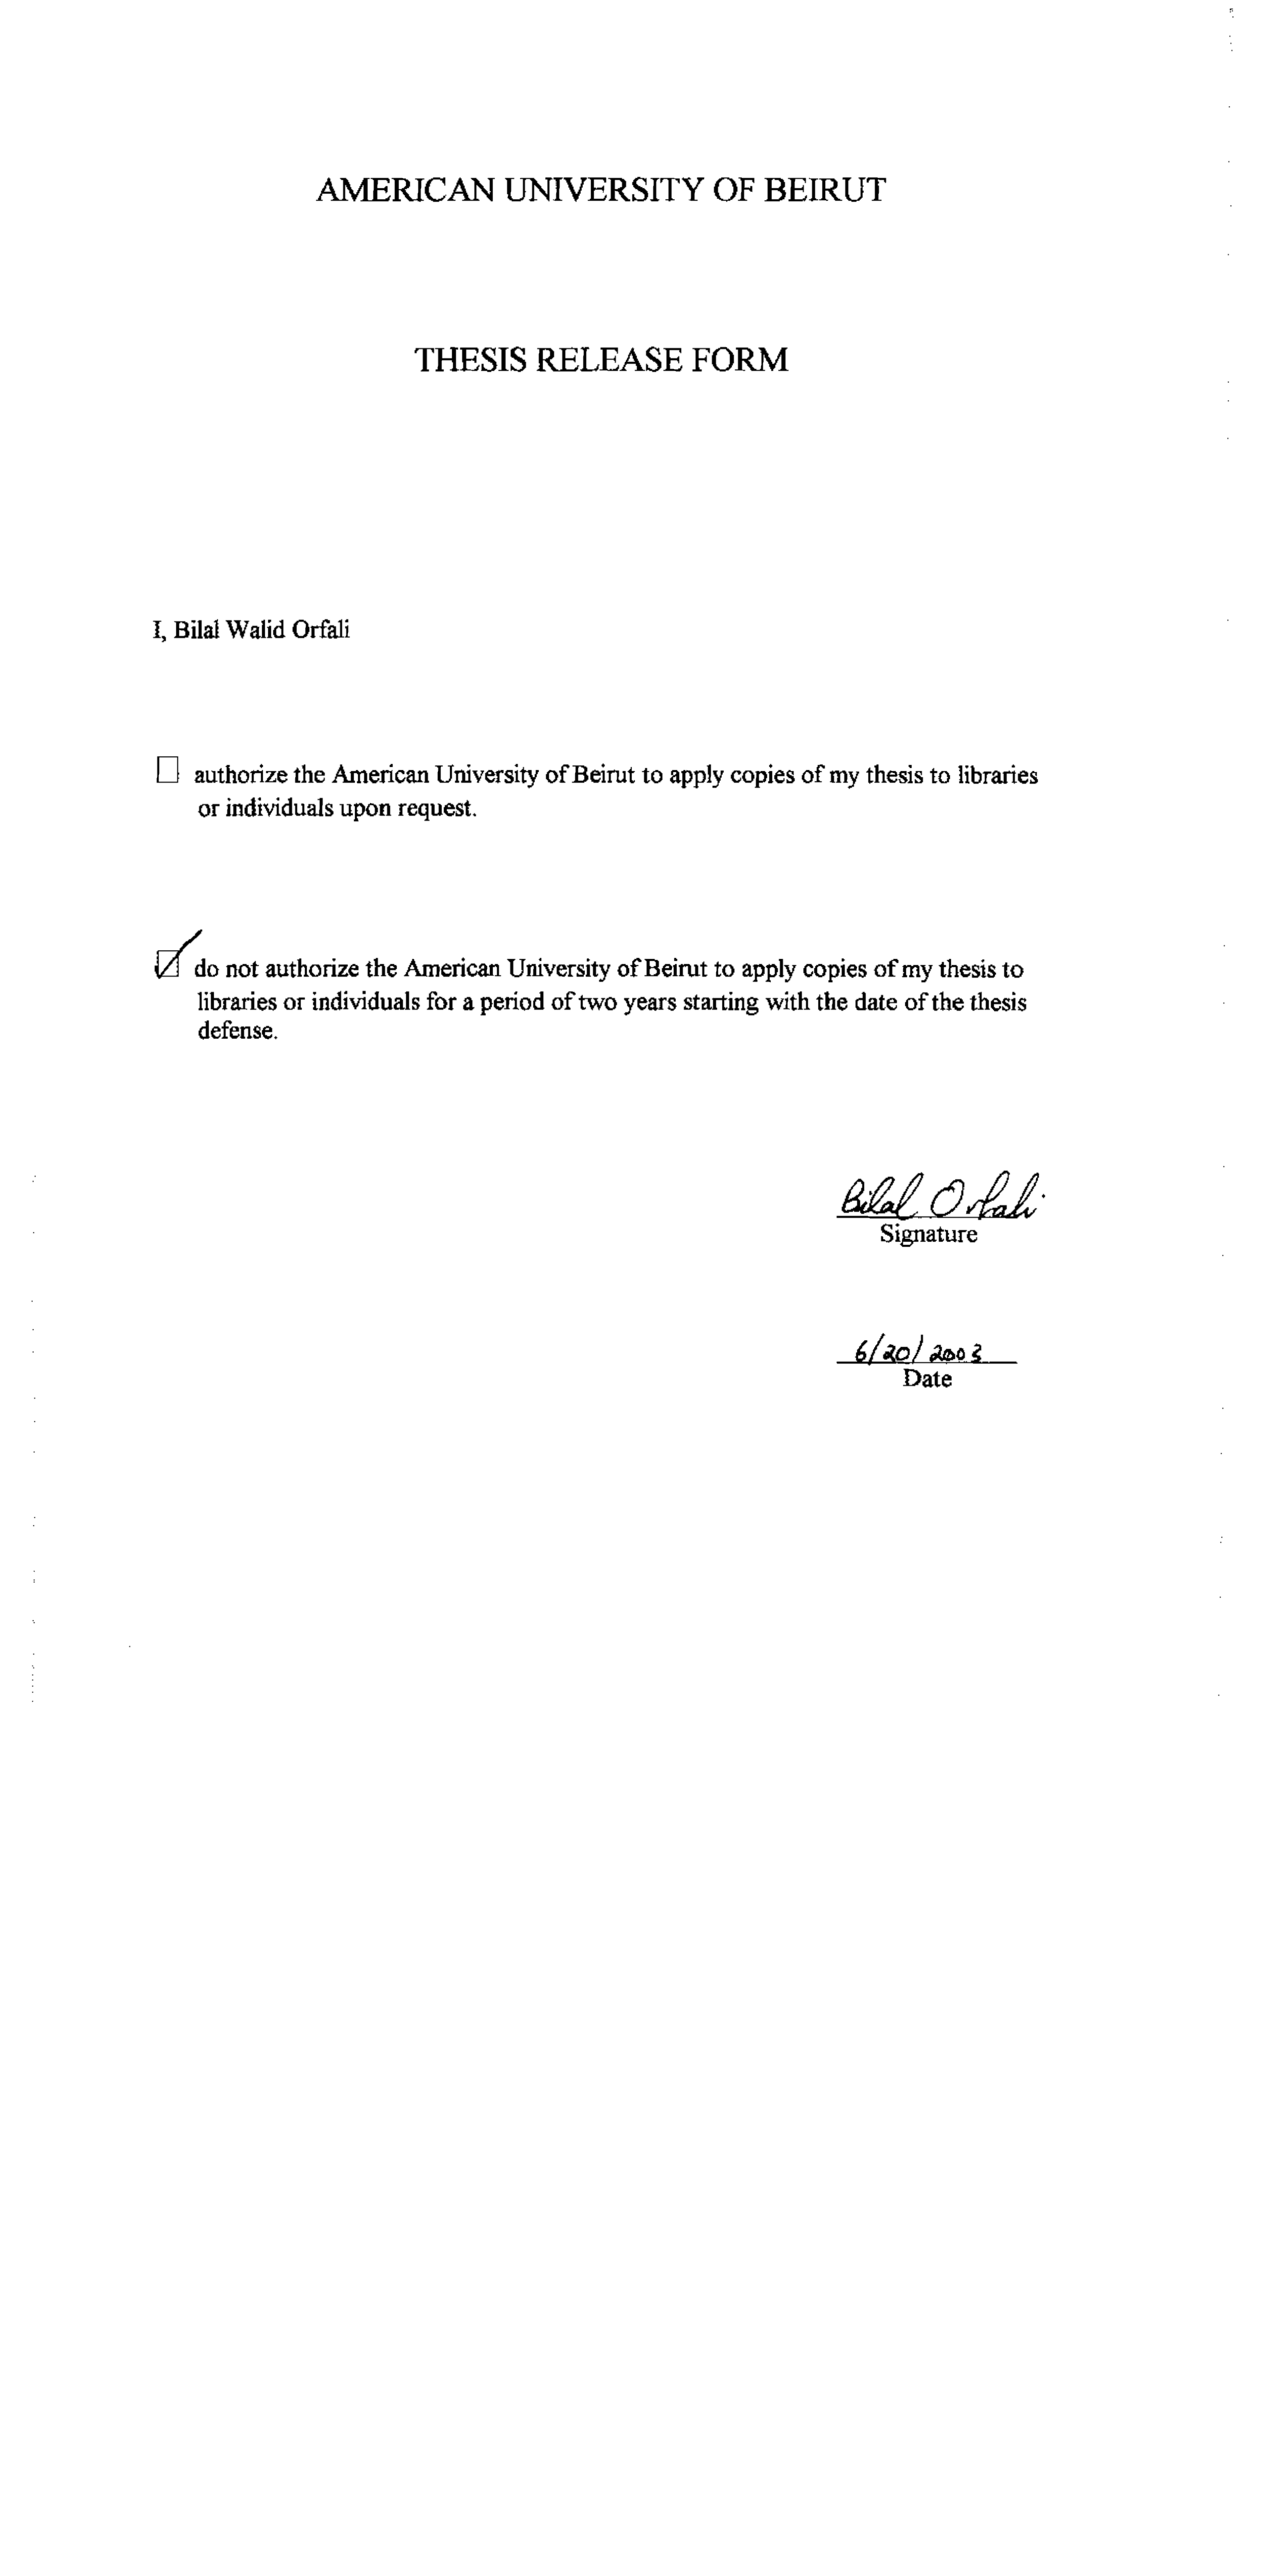 AMERICAN UNIVERSITY OF BEIRUT
THESIS RELEASE FORM
I, Bilal Walid Orfali
authorize the American University of Beirut to apply copies of my thesis to libraries
or individuals upon request.
do not authorize the American University of Beirut to apply copies of my thesis to
libraries or individuals for a period of two years starting with the date of the thesis
defense.
Bilal Orfali
Signature
6/20/2003
Date